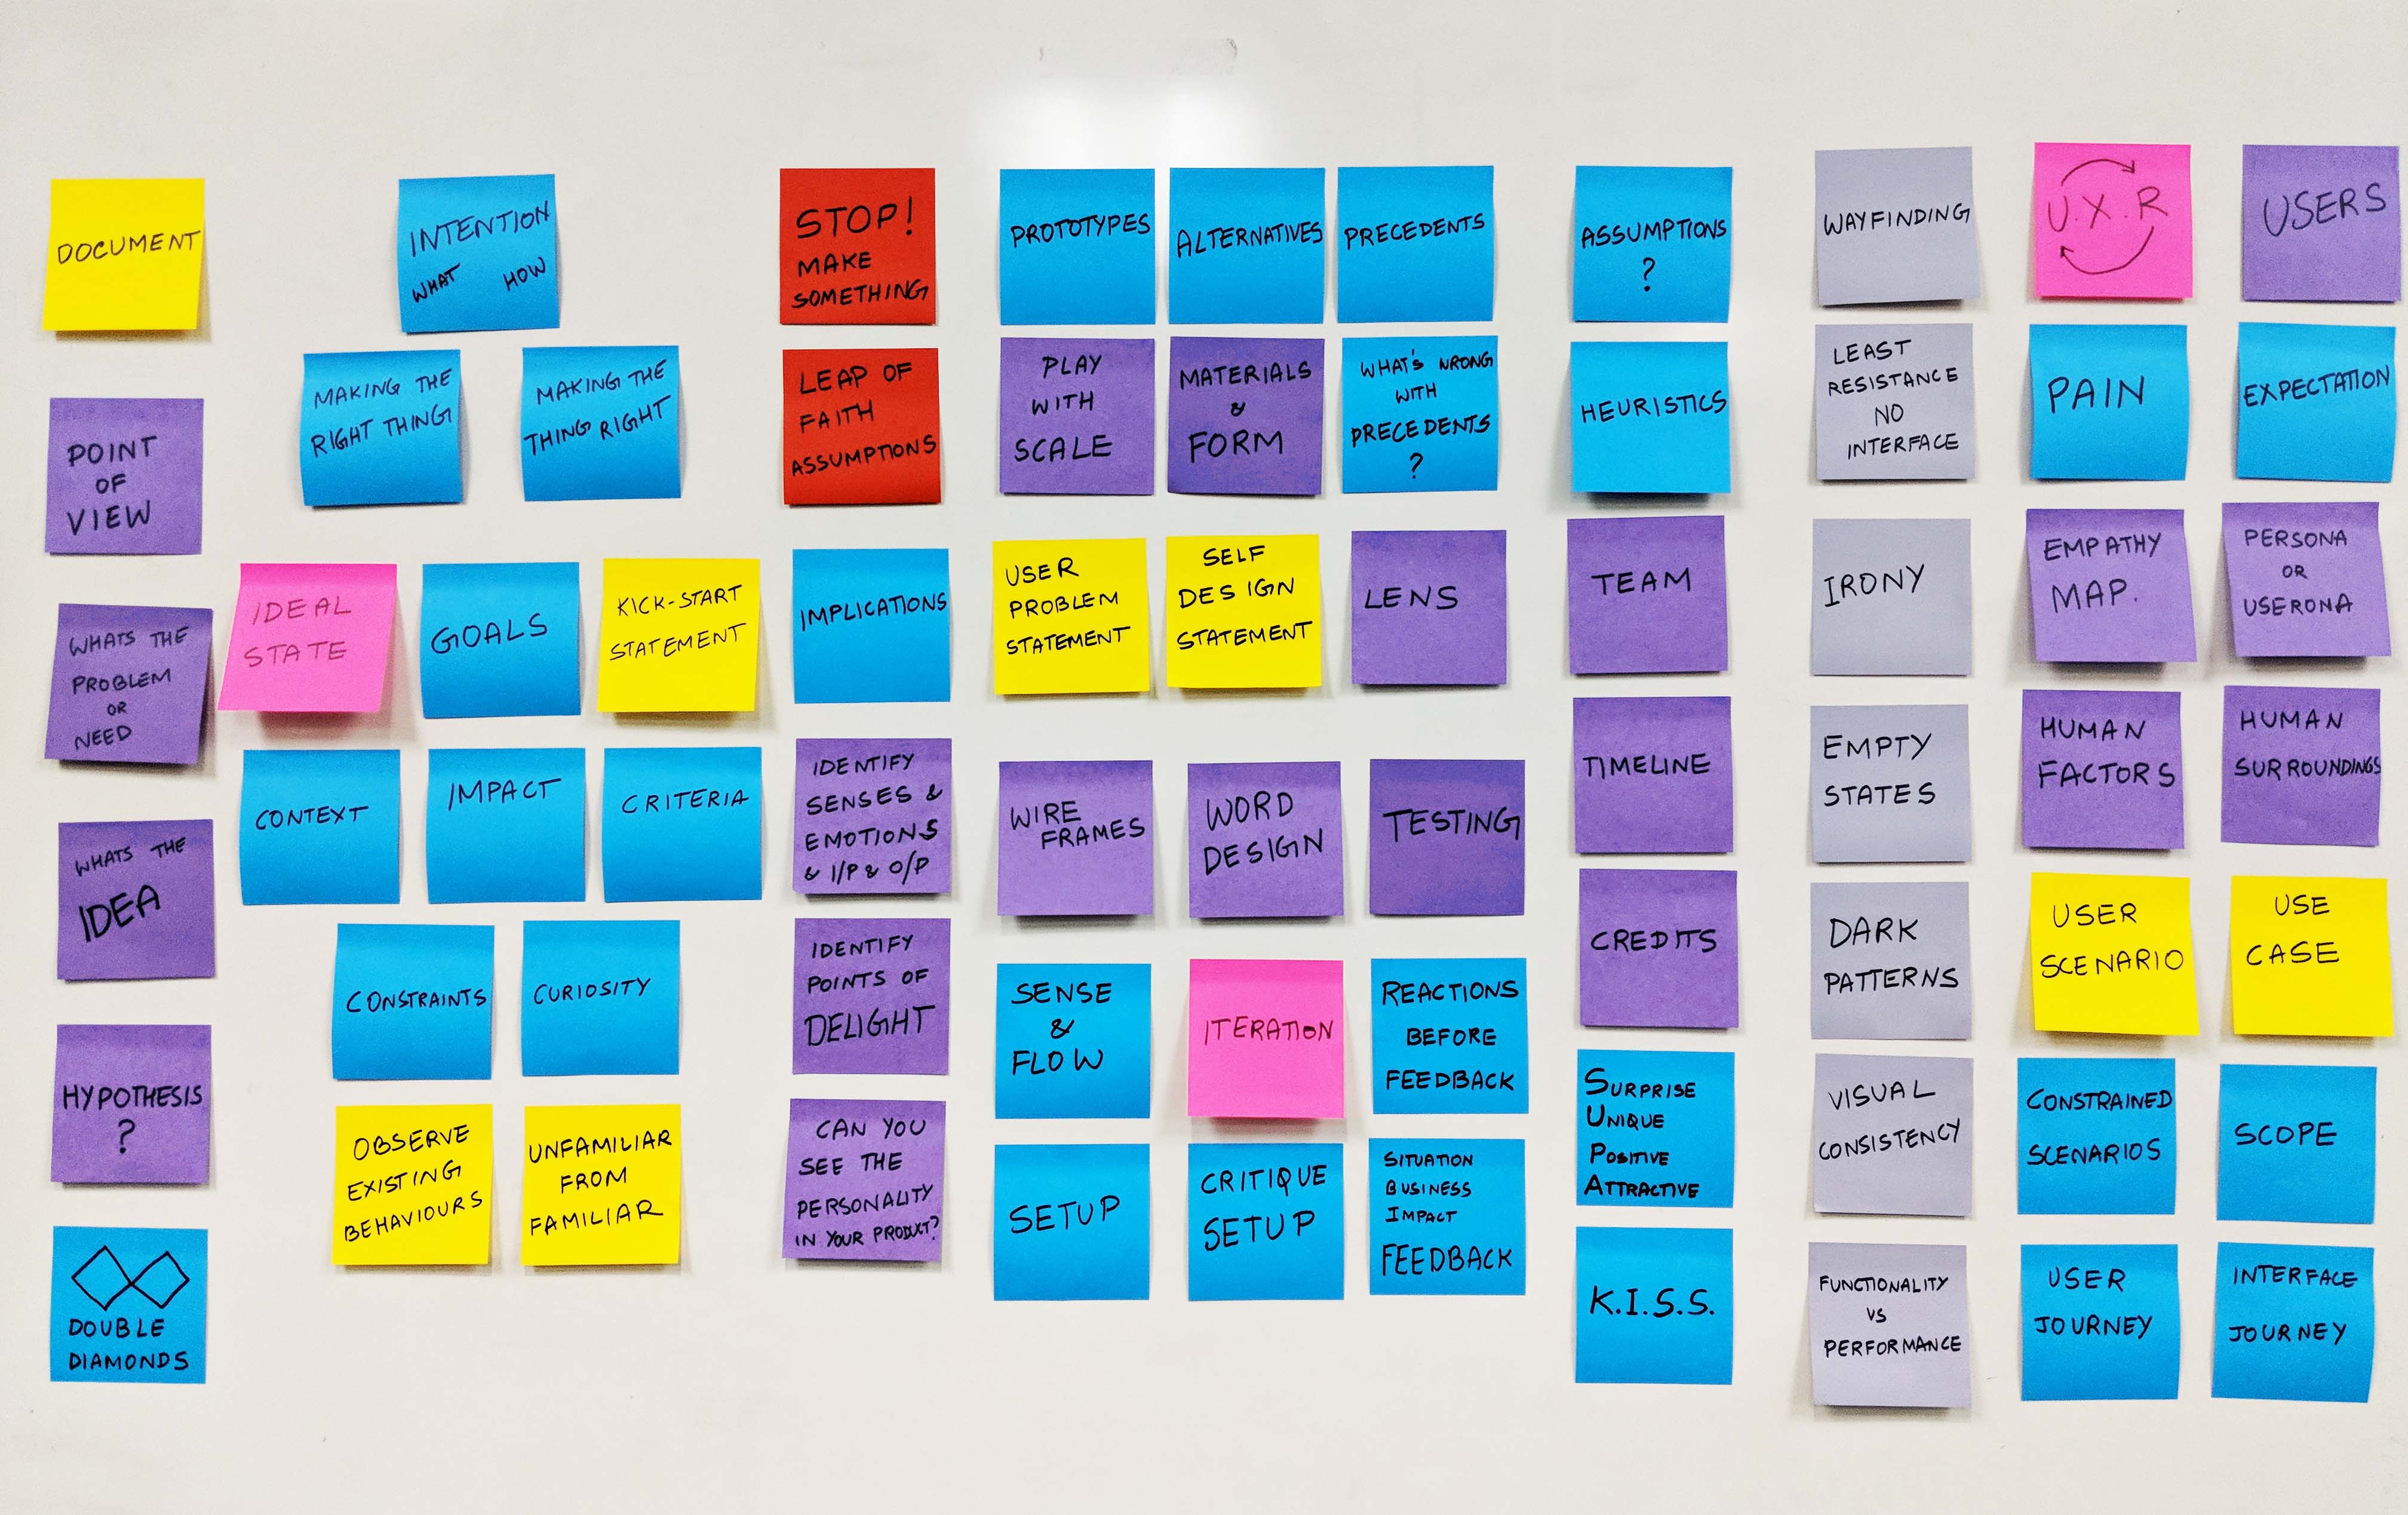 DOCUMENT
POINT
OF
VIEW
WHATS THE
PROBLEM
OR
NEED
WHATS THE
IDEA
HYPOTHESIS
?
DOUBLE
DIAMONDS
INTENTION
WHAT HOW
MAKING THE
RIGHT THING
MAKING THE
THING RIGHT
IDEAL
STATE
GOALS
KICK-START
STATEMENT
CONTEXT
IMPACT
CRITERIA
CONSTRAINTS
CURIOSITY
OBSERVE
EXISTING
BEHAVIOURS
UNFAMILIAR
FROM
FAMILIAR
STOP!
MAKE
SOMETHING
LEAP OF
FAITH
ASSUMPTIONS
IMPLICATIONS
IDENTIFY
SENSES &
EMOTIONS
& I/P & O/P
IDENTIFY
POINTS OF
DELIGHT
CAN YOU
SEE THE
PERSONALITY
IN YOUR PRODUCT?
PROTOTYPES
ALTERNATIVES
PRECEDENTS
PLAY
WITH
SCALE
MATERIALS
&
FORM
WHAT'S WRONG
WITH
PRECEDENTS
?
USER
PROBLEM
STATEMENT
SELF
DESIGN
STATEMENT
LENS
WIRE
FRAMES
WORD
DESIGN
TESTING
SENSE
&
FLOW
ITERATION
REACTIONS
BEFORE
FEEDBACK
SETUP
CRITIQUE
SETUP
SITUATION
BUSINESS
IMPACT
FEEDBACK
ASSUMPTIONS
?
HEURISTICS
TEAM
TIMELINE
CREDITS
SURPRISE
UNIQUE
POSITIVE
ATTRACTIVE
K.I.S.S.
WAYFINDING
LEAST
RESISTANCE
NO
INTERFACE
IRONY
EMPTY
STATES
DARK
PATTERNS
VISUAL
CONSISTENCY
FUNCTIONALITY
VS
PERFORMANCE
U.X.R
USERS
PAIN
EXPECTATION
EMPATHY
MAP.
PERSONA
OR
USERONA
HUMAN
FACTORS
HUMAN
SURROUNDINGS
USER
SCENARIO
USE
CASE
CONSTRAINED
SCENARIOS
SCOPE
USER
JOURNEY
INTERFACE
JOURNEY